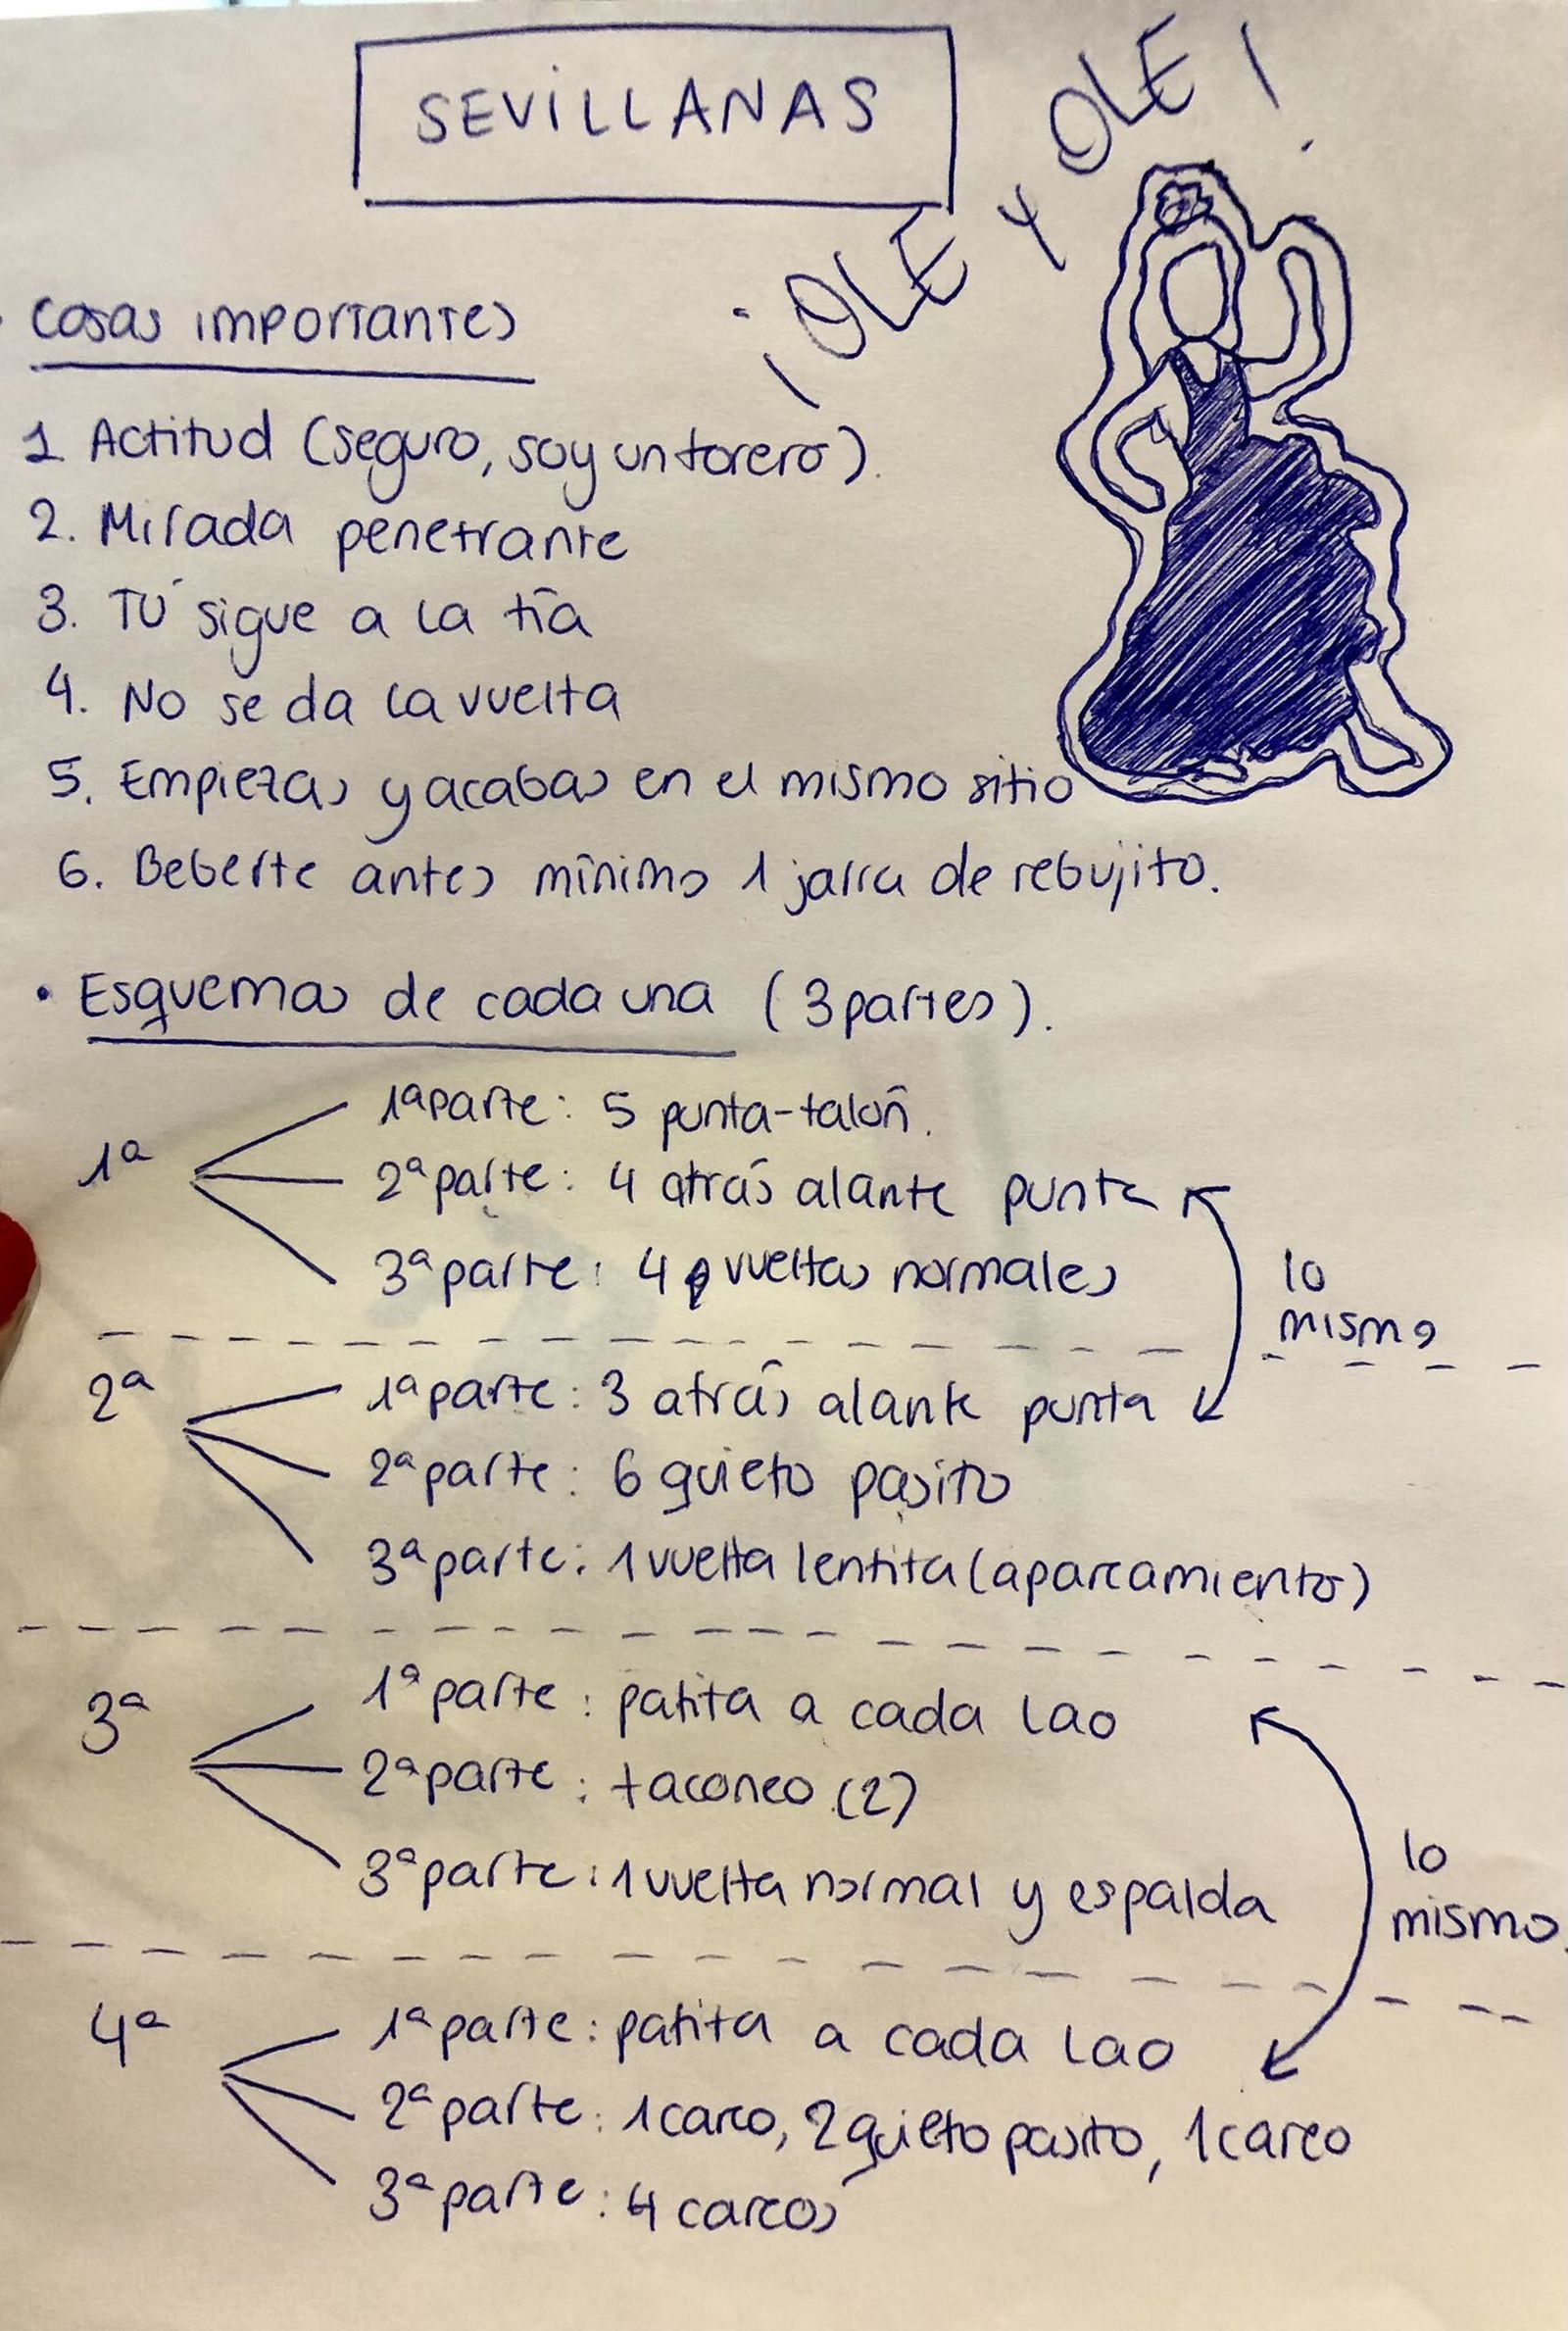 SEVILLANAS
¡OLE Y OLE!
Cosas importantes
1 Actitud (seguro, soy un torero).
2. Mirada penetrante
3. TÚ sigue a la tía
4. No se da la vuelta
5. Empiezas y acabas en el mismo sitio
6. Beberte antes mínimo 1 jarra de rebujito.
• Esquemas de cada una (3 partes).
1ª
1ª parte: 5 punta-talón.
2ª parte: 4 atrás alante punta
3ª parte: 4 vueltas normales
lo
mismo
2ª
1ª parte: 3 atrás alante punta
2ª parte: 6 quieto pasito
3ª parte: 1 vuelta lentita (aparcamiento)
3ª
1ª parte: patita a cada lao
2ª parte: taconeo (2)
3ª parte: 1 vuelta normal y espalda
lo
mismo.
4ª
1ª parte: patita a cada lao
2ª parte: 1 careo, 2 quieto pasito, 1 careo
3ª parte: 4 careos